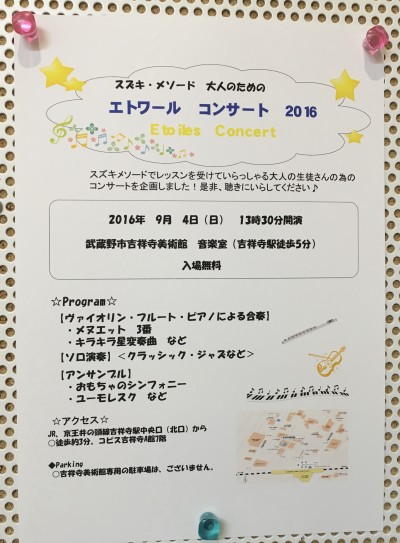 スズキ・メソード 大人のための
エトワール コンサート 2016
Etoiles Concert
スズキメソードでレッスンを受けていらっしゃる大人の生徒さんの為の
コンサートを企画しました！是非、聴きにいらしてください♪
2016年 9月 4日（日） 13時30分開演
武蔵野市吉祥寺美術館 音楽室（吉祥寺駅徒歩5分）
入場無料
☆Program☆
【ヴァイオリン・フルート・ピアノによる合奏】
・メヌエット 3番
・キラキラ星変奏曲 など
【ソロ演奏】＜クラッシック・ジャズなど＞
【アンサンブル】
・おもちゃのシンフォニー
・ユーモレスク など
☆アクセス☆
JR、京王井の頭線吉祥寺駅中央口（北口）から
○徒歩約3分、コピス吉祥寺A館7階
◆Parking
○吉祥寺美術館専用の駐車場は、ございません。